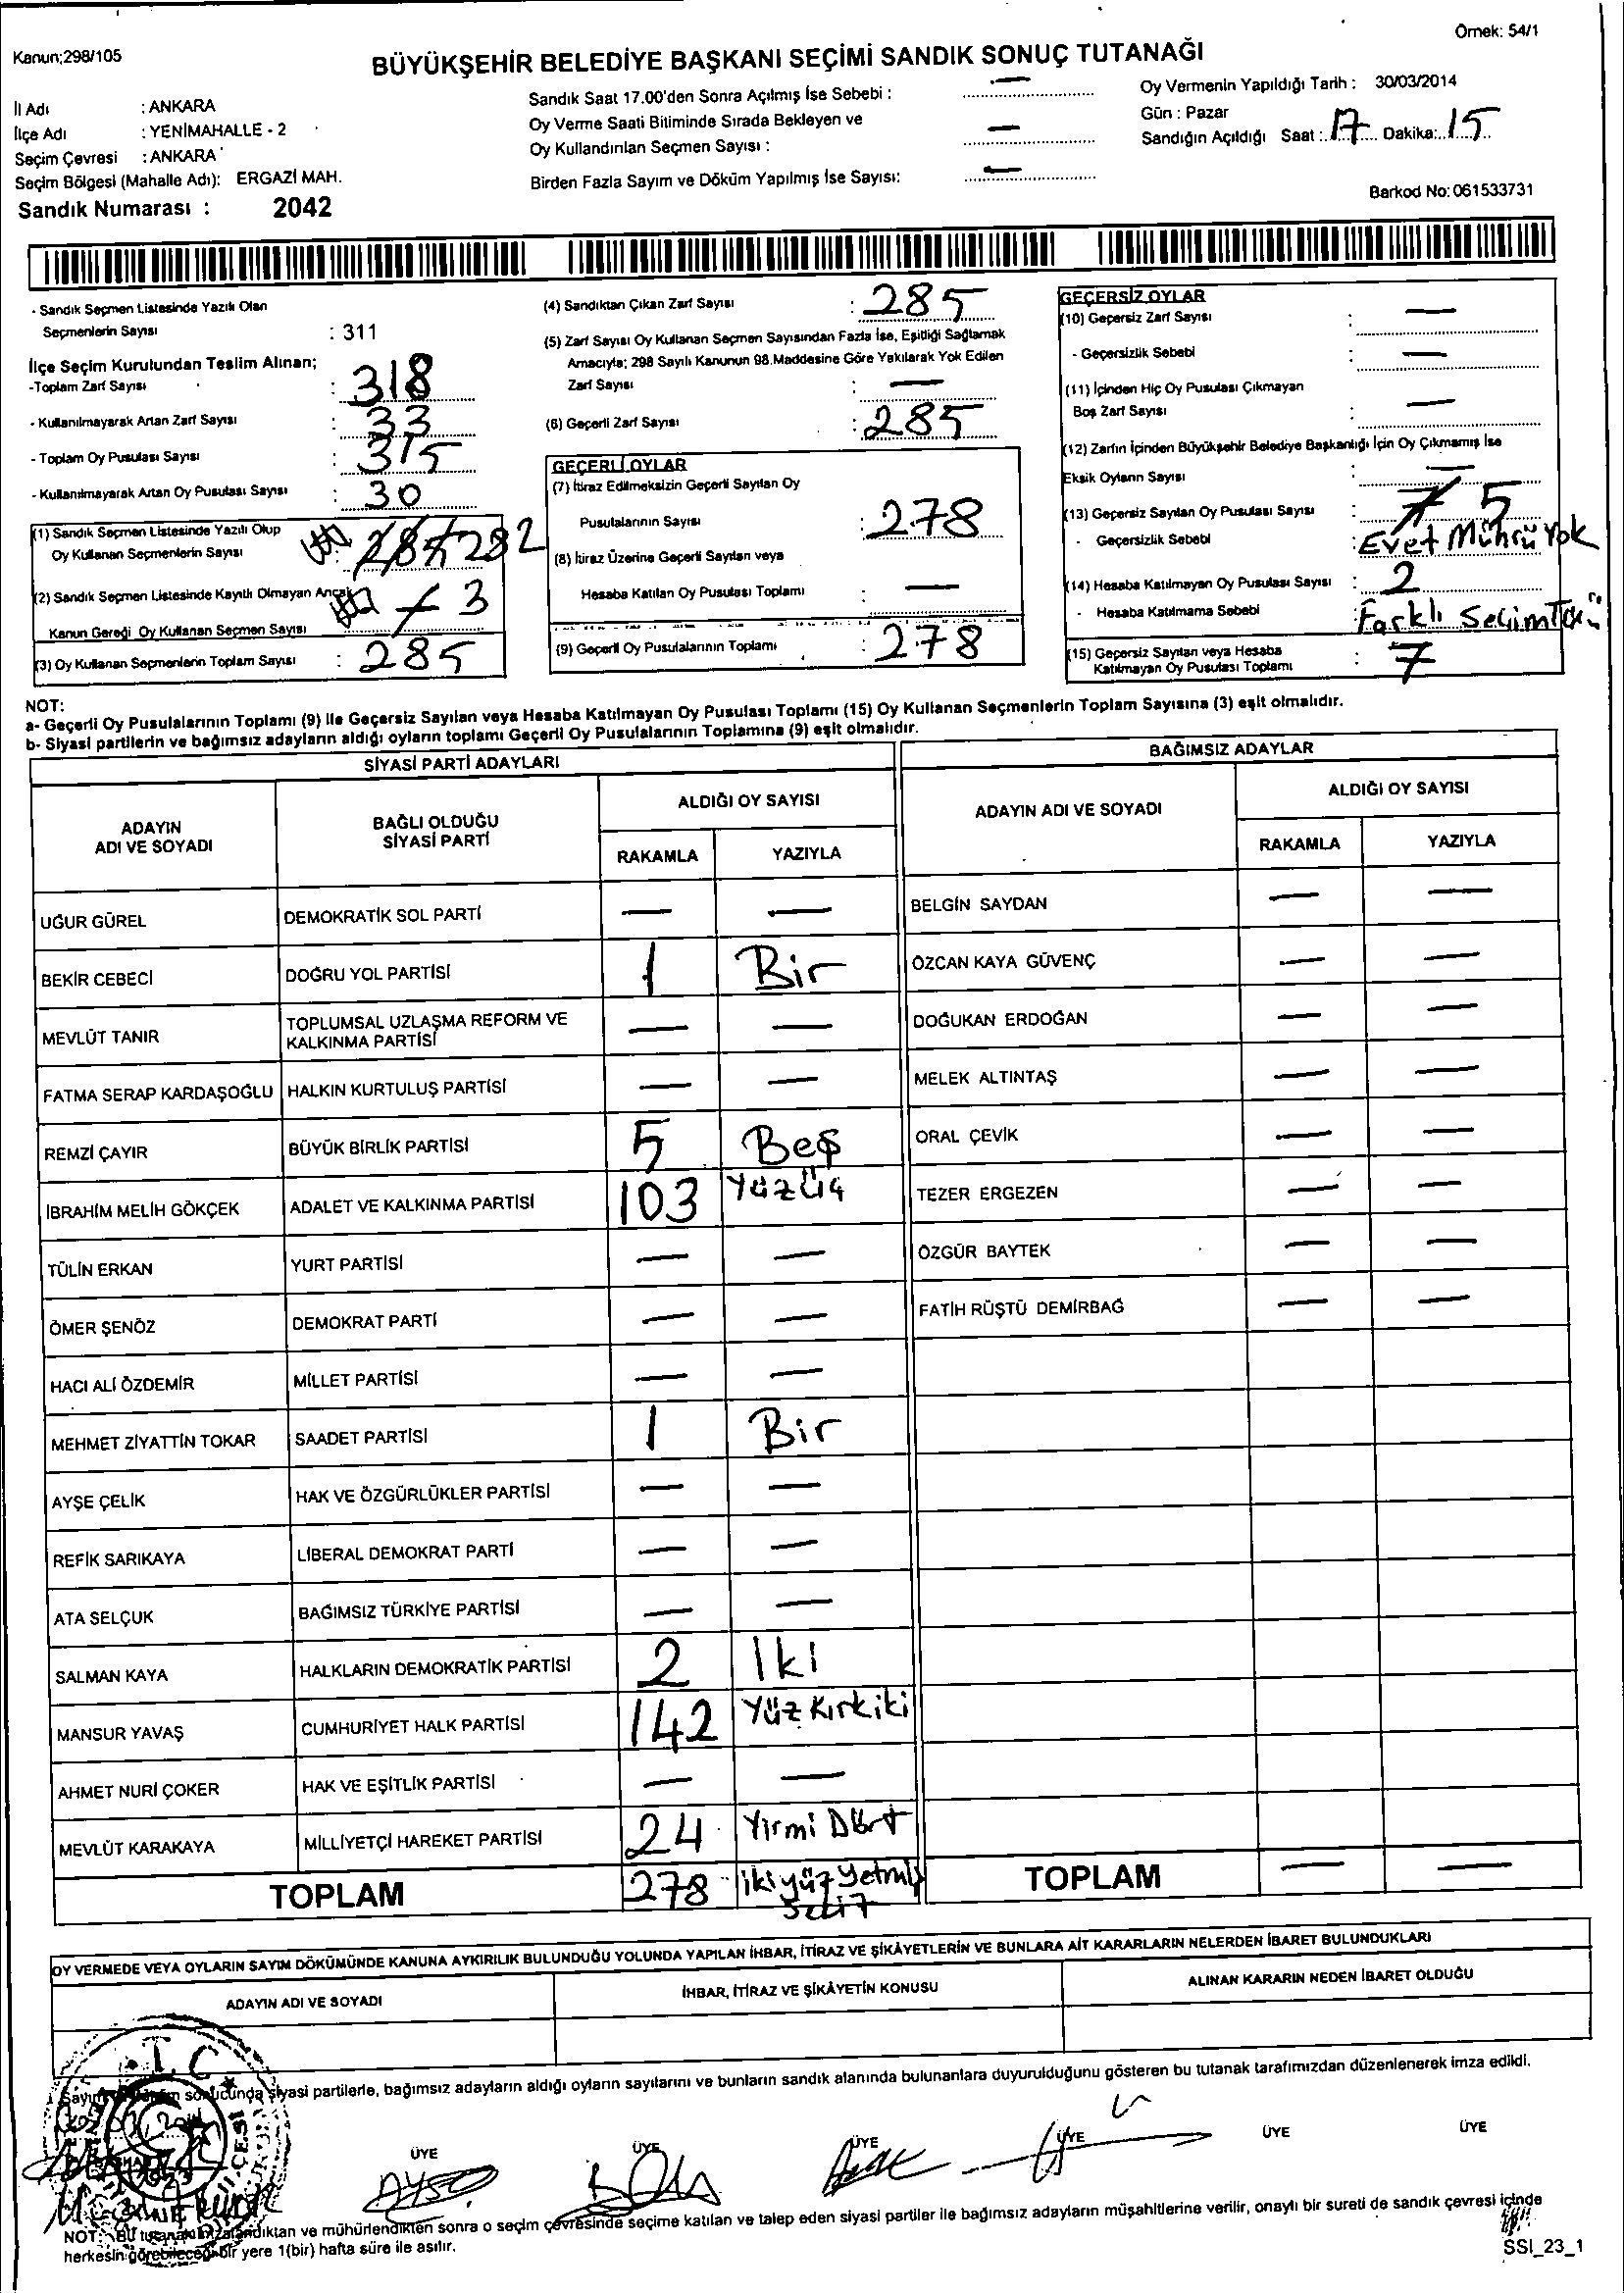 Örnek: 54/1
Kanun;298/105
BÜYÜKŞEHİR BELEDİYE BAŞKANI SEÇİMİ SANDIK SONUÇ TUTANAĞI
İl Adı : ANKARA
İlçe Adı : YENİMAHALLE - 2
Seçim Çevresi : ANKARA
Seçim Bölgesi (Mahalle Adı): ERGAZİ MAH.
Sandık Numarası : 2042
Sandık Saat 17.00'den Sonra Açılmış İse Sebebi : —
Oy Verme Saati Bitiminde Sırada Bekleyen ve
Oy Kullandırılan Seçmen Sayısı : —
Birden Fazla Sayım ve Döküm Yapılmış İse Sayısı: —
Oy Vermenin Yapıldığı Tarih : 30/03/2014
Gün : Pazar
Sandığın Açıldığı Saat : 17 Dakika: 15
Barkod No: 061533731
- Sandık Seçmen Listesinde Yazılı Olan
Seçmenlerin Sayısı : 311
İlçe Seçim Kurulundan Teslim Alınan;
-Toplam Zarf Sayısı : 318
- Kullanılmayarak Artan Zarf Sayısı : 33
- Toplam Oy Pusulası Sayısı : 315
- Kullanılmayarak Artan Oy Pusulası Sayısı : 30
(1) Sandık Seçmen Listesinde Yazılı Olup
Oy Kullanan Seçmenlerin Sayısı 282
(2) Sandık Seçmen Listesinde Kayıtlı Olmayan Ancak
Kanun Gereği Oy Kullanan Seçmen Sayısı 3
(3) Oy Kullanan Seçmenlerin Toplam Sayısı : 285
(4) Sandıktan Çıkan Zarf Sayısı : 285
(5) Zarf Sayısı Oy Kullanan Seçmen Sayısından Fazla İse, Eşitliği Sağlamak
Amacıyla; 298 Sayılı Kanunun 98.Maddesine Göre Yakılarak Yok Edilen
Zarf Sayısı : —
(6) Geçerli Zarf Sayısı : 285
GEÇERLİ OYLAR
(7) İtiraz Edilmeksizin Geçerli Sayılan Oy
Pusulalarının Sayısı : 278
(8) İtiraz Üzerine Geçerli Sayılan veya
Hesaba Katılan Oy Pusulası Toplamı : —
(9) Geçerli Oy Pusulalarının Toplamı : 278
GEÇERSİZ OYLAR
(10) Geçersiz Zarf Sayısı : —
- Geçersizlik Sebebi : —
(11) İçinden Hiç Oy Pusulası Çıkmayan
Boş Zarf Sayısı : —
(12) Zarfın İçinden Büyükşehir Belediye Başkanlığı İçin Oy Çıkmamış İse
Eksik Oyların Sayısı : —
(13) Geçersiz Sayılan Oy Pusulası Sayısı : 7 5
- Geçersizlik Sebebi : Evet Mührü Yok
(14) Hesaba Katılmayan Oy Pusulası Sayısı : 2
- Hesaba Katılmama Sebebi : Farklı Seçim
(15) Geçersiz Sayılan veya Hesaba
Katılmayan Oy Pusulası Toplamı : 7
NOT:
a- Geçerli Oy Pusulalarının Toplamı (9) ile Geçersiz Sayılan veya Hesaba Katılmayan Oy Pusulası Toplamı (15) Oy Kullanan Seçmenlerin Toplam Sayısına (3) eşit olmalıdır.
b- Siyasi partilerin ve bağımsız adayların aldığı oyların toplamı Geçerli Oy Pusulalarının Toplamına (9) eşit olmalıdır.
SİYASİ PARTİ ADAYLARI
BAĞIMSIZ ADAYLAR
ADAYIN
ADI VE SOYADI
BAĞLI OLDUĞU
SİYASİ PARTİ
ALDIĞI OY SAYISI
RAKAMLA YAZIYLA
ADAYIN ADI VE SOYADI
ALDIĞI OY SAYISI
RAKAMLA YAZIYLA
UĞUR GÜREL DEMOKRATİK SOL PARTİ — —
BEKİR CEBECİ DOĞRU YOL PARTİSİ 1 Bir
MEVLÜT TANIR TOPLUMSAL UZLAŞMA REFORM VE
KALKINMA PARTİSİ — —
FATMA SERAP KARDAŞOĞLU HALKIN KURTULUŞ PARTİSİ — —
REMZİ ÇAYIR BÜYÜK BİRLİK PARTİSİ 5 Beş
İBRAHİM MELİH GÖKÇEK ADALET VE KALKINMA PARTİSİ 103 Yüzüç
TÜLİN ERKAN YURT PARTİSİ — —
ÖMER ŞENÖZ DEMOKRAT PARTİ — —
HACI ALİ ÖZDEMİR MİLLET PARTİSİ — —
MEHMET ZİYATTİN TOKAR SAADET PARTİSİ 1 Bir
AYŞE ÇELİK HAK VE ÖZGÜRLÜKLER PARTİSİ — —
REFİK SARIKAYA LİBERAL DEMOKRAT PARTİ — —
ATA SELÇUK BAĞIMSIZ TÜRKİYE PARTİSİ — —
SALMAN KAYA HALKLARIN DEMOKRATİK PARTİSİ 2 Iki
MANSUR YAVAŞ CUMHURİYET HALK PARTİSİ 142 Yüz Kırkiki
AHMET NURİ ÇOKER HAK VE EŞİTLİK PARTİSİ — —
MEVLÜT KARAKAYA MİLLİYETÇİ HAREKET PARTİSİ 24 Yirmi Dört
TOPLAM 278 ikiyüz yetmiş
Sekiz
BELGİN SAYDAN — —
ÖZCAN KAYA GÜVENÇ — —
DOĞUKAN ERDOĞAN — —
MELEK ALTINTAŞ — —
ORAL ÇEVİK — —
TEZER ERGEZEN — —
ÖZGÜR BAYTEK — —
FATİH RÜŞTÜ DEMİRBAĞ — —
TOPLAM — —
OY VERMEDE VEYA OYLARIN SAYIM DÖKÜMÜNDE KANUNA AYKIRILIK BULUNDUĞU YOLUNDA YAPILAN İHBAR, İTİRAZ VE ŞİKÂYETLERİN VE BUNLARA AİT KARARLARIN NELERDEN İBARET BULUNDUKLARI
ADAYIN ADI VE SOYADI İHBAR, İTİRAZ VE ŞİKÂYETİN KONUSU ALINAN KARARIN NEDEN İBARET OLDUĞU
sonucunda siyasi partilerle, bağımsız adayların aldığı oyların sayılarını ve bunların sandık alanında bulunanlara duyurulduğunu gösteren bu tutanak tarafımızdan düzenlenerek imza edildi.
T.C
ÜYE ÜYE ÜYE ÜYE ÜYE ÜYE
NOT: Bu tutanak imzalandıktan ve mühürlendikten sonra o seçim çevresinde seçime katılan ve talep eden siyasi partiler ile bağımsız adayların müşahitlerine verilir, onaylı bir sureti de sandık çevresi içinde
herkesin görebileceği bir yere 1(bir) hafta süre ile asılır.
SSI_23_1